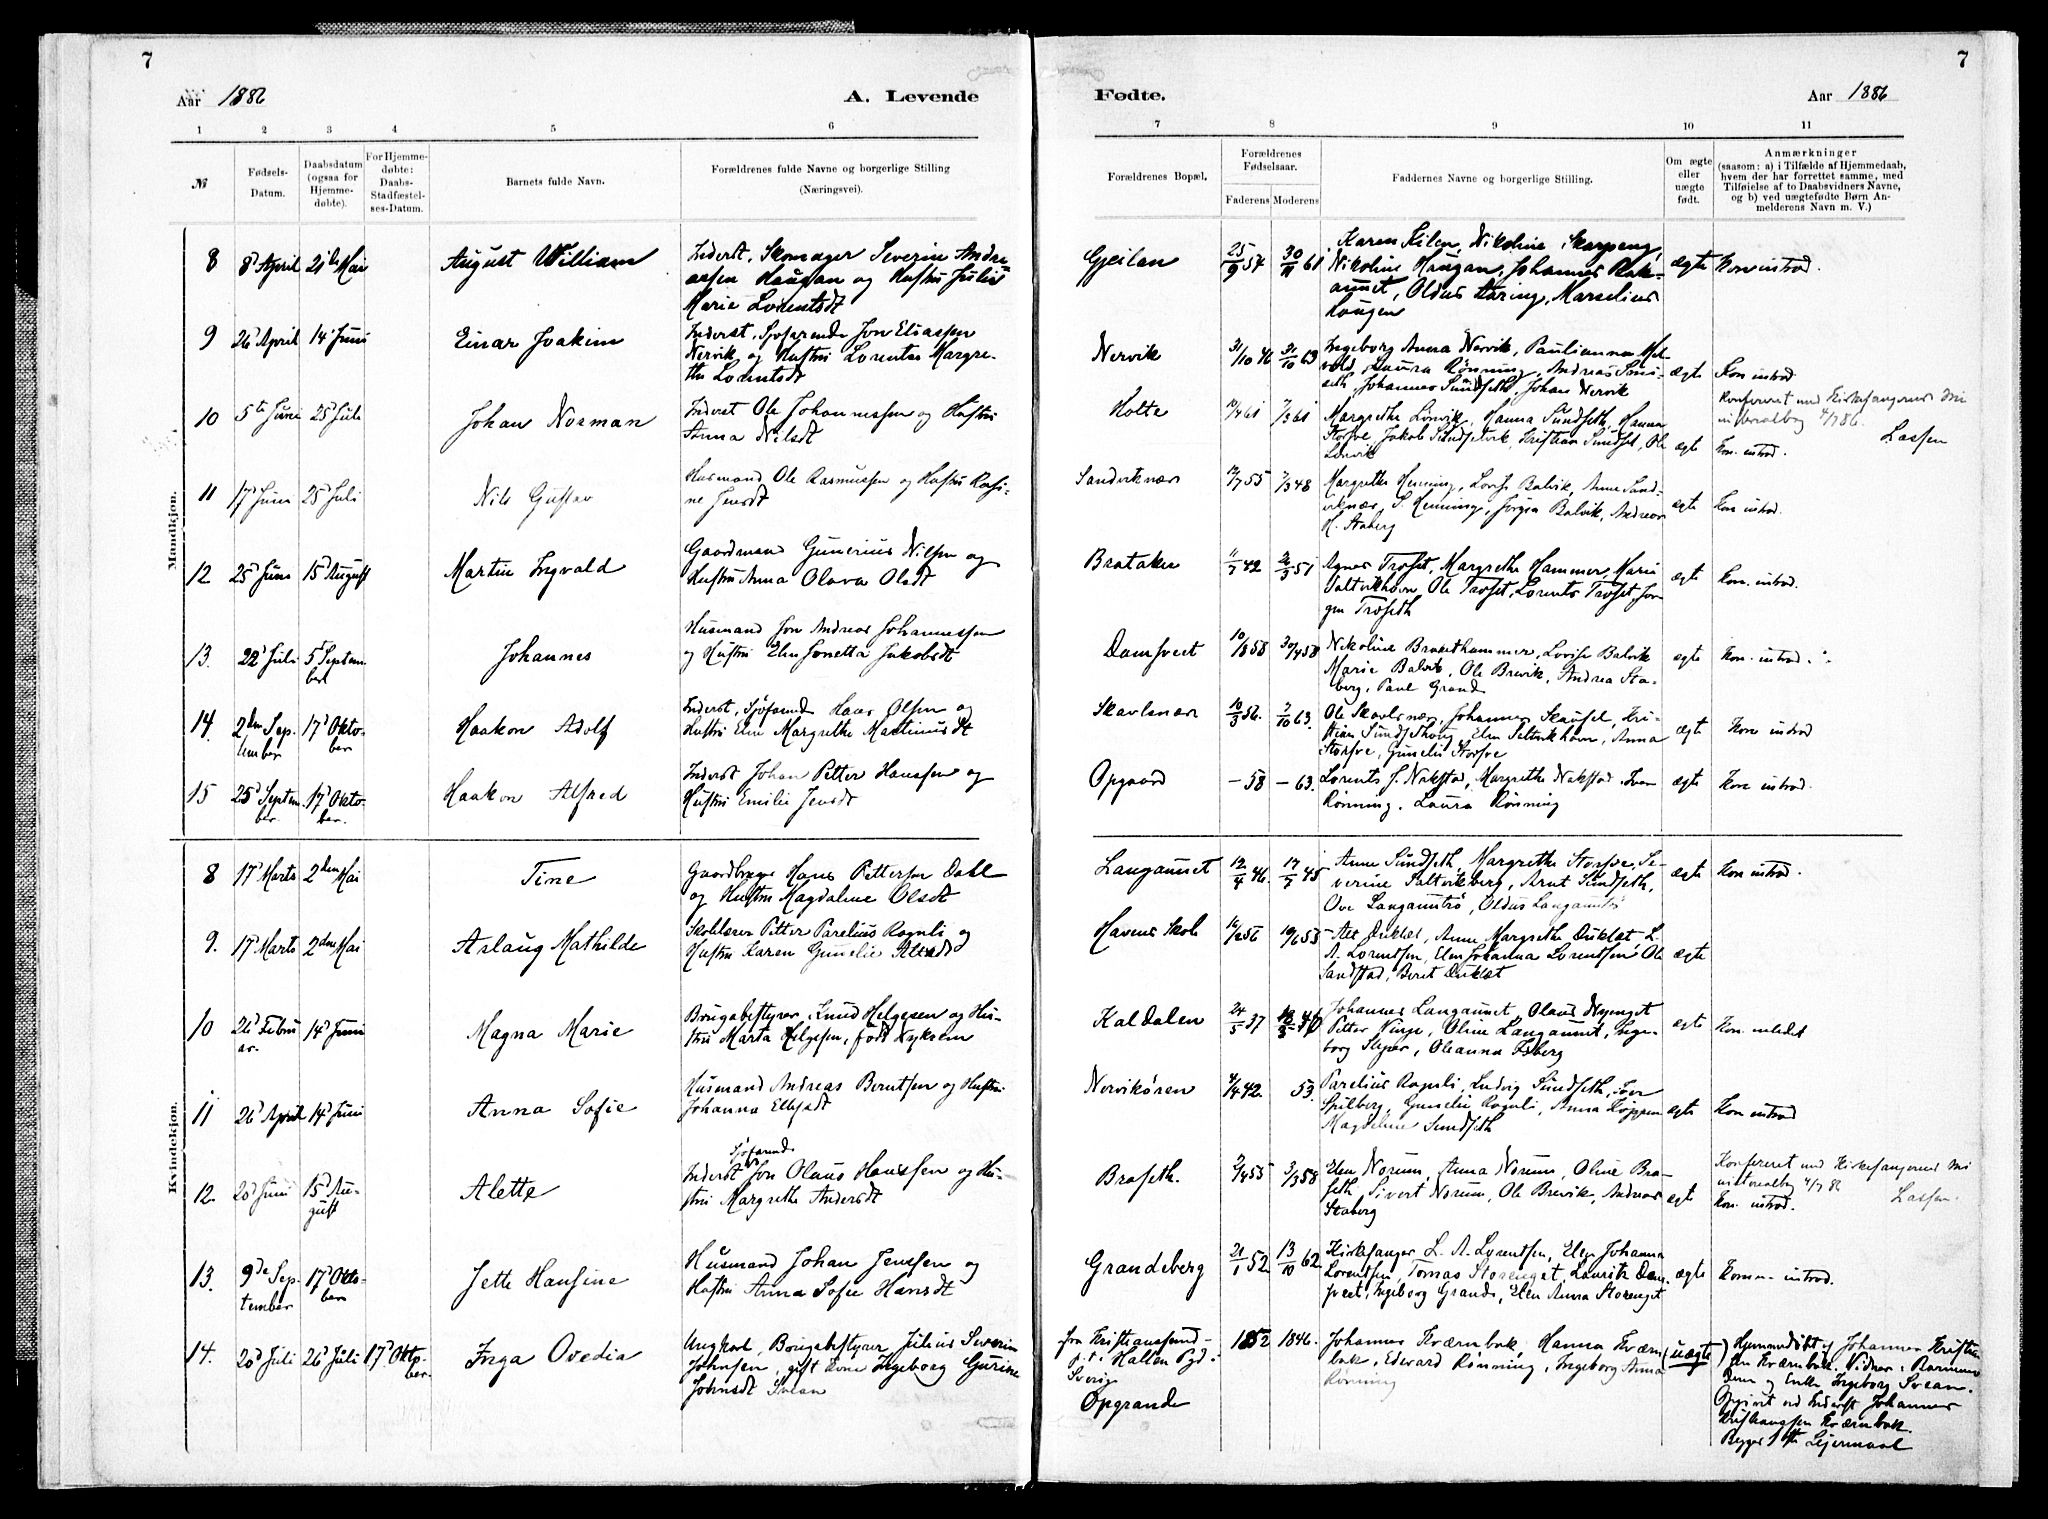 7
Aar 1886
A. Levende
1 2 3 4 5 6
№
Fødsels-Datum.
Daabsdatum (ogsaa for Hjemme-døbte).
For Hjemme-døbte: Daabs-Stadfæstel-ses-Datum.
Barnets fulde Navn.
Forældrenes fulde Navne og borgerlige Stilling
(Næringsvei).
Mandkjøn.
8 8d April 21de Mai August William Inderst, Skomager Severin Andre-
assen Haugan og Hustru Julie
Marie Lorentsdt
9 26d April 14d Juni Einar Joakim Inderst, Sjøfarende Jon Eliassen
Nervik og Hustru Lorentse Margre-
the Lorentsdt
10 5te Juni 25d Juli Johan Norman Inderst Ole Johannessen og Hustru
Anna Nilsdt
11 17d Juni 25d Juli Nils Gustav Husmand Ole Rasmussen og Hustru Rasi-
ne Jensdt
12 25d Juni 15d August Martin Ingvald Gaardmand Gunerius Nilsen og
Hustru Anna Olava Olsdt
13. 22d Juli 5d Septem-
ber Johannes Husmand Jon Andreas Johannessen
og Hustru Elen Jonetta Jakobsdt
14. 2den Sep-
tember 17d Okto-
ber Haakon Adolf Inderst, Sjøfarende Haar Olsen og
Hustru Elen Margrethe Martinusdt
15 25d Septem-
ber 17d Okto-
ber. Haakon Alfred Inderst Johan Petter Hanssen og
Hustru Emilie Jensdt
Kvindekjøn.
8 17d Marts 2den Mai Tine Gaardbruger Hans Pettersen Dahl
og Hustru Magdalene Olsdt
9. 17d Marts 2den Mai Aslaug Mathilde Skolelærer Petter Parelius Rognli og
Hustru Karen Gunelie
10 26d Febru-
ar. 14d Juni Magna Marie Brugsbestyrer Knud Helgesen og Hu-
stru Marta Helgesen, født
11 26d April 14d Juni Anna Sofie Husmand Andreas Berntsen og Hustru
Johanna Ellefsdt
12. 20d Juni 15d Au-
gust Alette Inderst Sjøfarende Jon Olaus Hanssen og Hu-
stru Margrethe Andersdt
13. 9de Sep-
tember 17d Okto-
ber Jette Hansine Husmand Johan Jenssen og
Hustru Anna Sofie Hansdt
14. 20d Juli 26d Juli 17d Okto-
ber. Inga Ovedia Ungkarl, Brugsbestyrer Julius Severin
Johnsen, gift Kone Ingeborg Gurine
Johnsdt Svean
7
Fødte.
Aar 1886
7 8 9 10 11
Forældrenes Bopæl.
Forældrenes Fødselsaar.
Faderens Moderens
Faddernes Navne og borgerlige Stilling.
Om ægte eller uægte født.
Anmærkninger
(saasom: a) i Tilfælde af Hjemmedaab,
hvem der har forrettet samme, med
Tilføielse af to Daabsvidners Navne,
og b) ved uægtefødte Børn An-
melderens Navn m. V.)
Gjeilan 25/9 57 30/11 61 Karen Kilen, Nikoline Skarpeng
Nikoline Haugan, Johannes
Oldus Aaring, Marselius
Haugen ægte Kon. introd.
Nervik 31/10 46 31/10 63 Ingeborg Anna Nervik,
Laura Rønning, Andreas
Johannes Sundseth, Johan Nervik ægte Kon introd
Holte 7/3 61 Margrethe Lønvik, Hanna Sundseth, Hanna
Storfve, Jakob Kristian Sundset, Ole
Lønvik ægte Konfereret med Kirkesangerens Mi-
nisterialbog 4/7 86.
Lassen
Kon. introd.
Sandviknær 12/7 55 7/3 48 Margrethe Henning, Lovise Balvik, Anne Sand-
viknær, S. Henning, Balvik, Andreas
H. Staberg ægte Kon introd.
Brataker 11/7 42 51 Agnes Trøset, Margrethe Hammer, Marie
Saltvikhavn, Ole Trøset, Lorents Trøset, Jør-
gen Trøseth ægte Kon. introd.
Damsveet 10/8 58 30/4 58 Nikoline Brasethammer, Lovise Balvik
Marie Balvik, Ole Brevik, Andrea Sta-
berg, Paul Grande ægte Kon. introd.
Skavlsnær 10/3 56. 7/10 63. Ole Skavlsnær, Johannes
Elen Saltvikhavn, Anna
Storfve, Gunelie Storfve ægte Kon introd
Opgaard – 58 – 63. Lorents J. Nakstad, Margrethe Nakstad,
Rønning. Laura Rønning ægte Kon introd.
Langaunet 12/4 46. 17/7 45 Anne Sundseth, Margrethe Storfve, Se-
verine Saltvikberg, Arnt Sundseth,
Ove Langaunet, Oldus ægte Kon introd.
Havens Skole Anne Margrethe
A. Lorentsen, Elen Johanna Lorentsen Ole
Sandstad, Beret ægte
Kaldalen 24/5 37 Johannes Langaunet, Olaus
Petter Oline Langaunet, Inge-
borg Oleanna ægte Kon. indledet
Nervikøren 4/4 42. 53. Parelius Rognli, Ludvig Sundseth, Iver
Spilberg, Gunelie Rognli, Anna
Magdalene Sundseth ægte Kon introd
Braseth. 2/4 55 3/3 58 Elen Norum, Anna Norum, Oline Bra-
seth, Sivert Norum, Ole Brevik, Andreas
Staberg ægte Konfereret med Kirkesangerens Mi-
nisterialbog 4/7 86
Lassen.
Kon. introd.
Grandeberg 21/1 52 13/10 62 Kirkesanger L. A. Lorentsen, Elen Johanna
Lorentsen, Tomas Storenget, Laurits Dam-
sveet, Ingeborg Grande, Elen Anna Storenget ægte Konen introd.
fra Kristianssund –
p. t. Hallen Pgd. i
Sverig
Opgrande 1852 1846. Johannes Kværnbak, Hanna Kværn-
bak, Edvard Rønning, Ingeborg Anna
Rønning uægte Hjemmedøbt af Johannes Kristian-
sen Kværnbak. Vidner: Barnemo-
deren og Enke Ingeborg Svean.
Opgivet ved Inderst Johannes
Kristianssen Kværnbak.
Begges 1ste Leiermaal